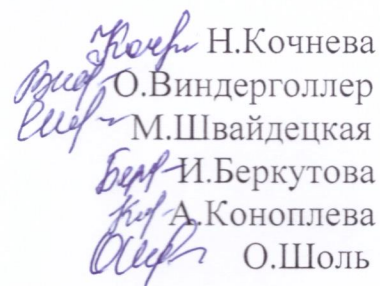 Н.Кочнева
О.Виндерголлер
М.Швайдецкая
И.Беркутова
А.Коноплева
О.Шоль